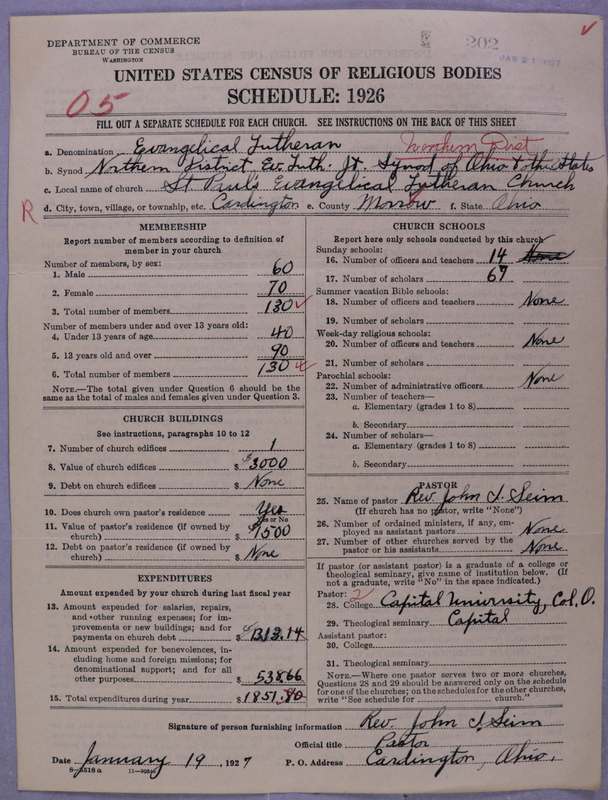 DEPARTMENT OF COMMERCE
BUREAU OF THE CENSUS
WASHINGTON
202
JAN 21 1927
UNITED STATES CENSUS OF RELIGIOUS BODIES
SCHEDULE: 1926
05
FILL OUT A SEPARATE SCHEDULE FOR EACH CHURCH. SEE INSTRUCTIONS ON THE BACK OF THIS SHEET
a. Denomination Evangelical Lutheran Dist
b. Synod Northern District Ev. Luth. Jt. Synod of Ohio & other States
c. Local name of church St Paul's Evangelical Lutheran Church
R d. City, town, village, or township, etc. Cardington e. County Morrow f. State Ohio
MEMBERSHIP
Report number of members according to definition of member in your church
Number of members, by sex:
1. Male 60
2. Female 70
3. Total number of members 130
Number of members under and over 13 years old:
4. Under 13 years of age 40
5. 13 years old and over 90
6. Total number of members 130
NOTE.—The total given under Question 6 should be the same as the total of males and females given under Question 3.
CHURCH BUILDINGS
See instructions, paragraphs 10 to 12
7. Number of church edifices 1
8. Value of church edifices $ 3000
9. Debt on church edifices $ None
10. Does church own pastor's residence Yes
Yes or No
11. Value of pastor's residence (if owned by church) $ 1500
12. Debt on pastor's residence (if owned by church) $ None
EXPENDITURES
Amount expended by your church during last fiscal year
13. Amount expended for salaries, repairs, and other running expenses; for improvements or new buildings; and for payments on church debt $ 1313.14
14. Amount expended for benevolences, including home and foreign missions; for denominational support; and for all other purposes $ 538.66
15. Total expenditures during year $ 1851.80
CHURCH SCHOOLS
Report here only schools conducted by this church
Sunday schools:
16. Number of officers and teachers 14 None
17. Number of scholars 67
Summer vacation Bible schools:
18. Number of officers and teachers None
19. Number of scholars
Week-day religious schools:
20. Number of officers and teachers None
21. Number of scholars
Parochial schools:
22. Number of administrative officers None
23. Number of teachers—
a. Elementary (grades 1 to 8)
b. Secondary
24. Number of scholars—
a. Elementary (grades 1 to 8)
b. Secondary
PASTOR
25. Name of pastor Rev. John I. Seim
(If church has no pastor, write "None")
26. Number of ordained ministers, if any, employed as assistant pastors None
27. Number of other churches served by the pastor or his assistants None
If pastor (or assistant pastor) is a graduate of a college or theological seminary, give name of institution below. (If not a graduate, write "No" in the space indicated.)
Pastor: 2
28. College Capital University, Col. O.
29. Theological seminary Capital
Assistant pastor:
30. College
31. Theological seminary
NOTE.—Where one pastor serves two or more churches, Questions 28 and 29 should be answered only on the schedule for one of the churches; on the schedules for the other churches, write "See schedule for church."
Signature of person furnishing information Rev. John I. Seim
Official title Pastor
Date January 19, 1927 P. O. Address Cardington, Ohio.
8—5518a